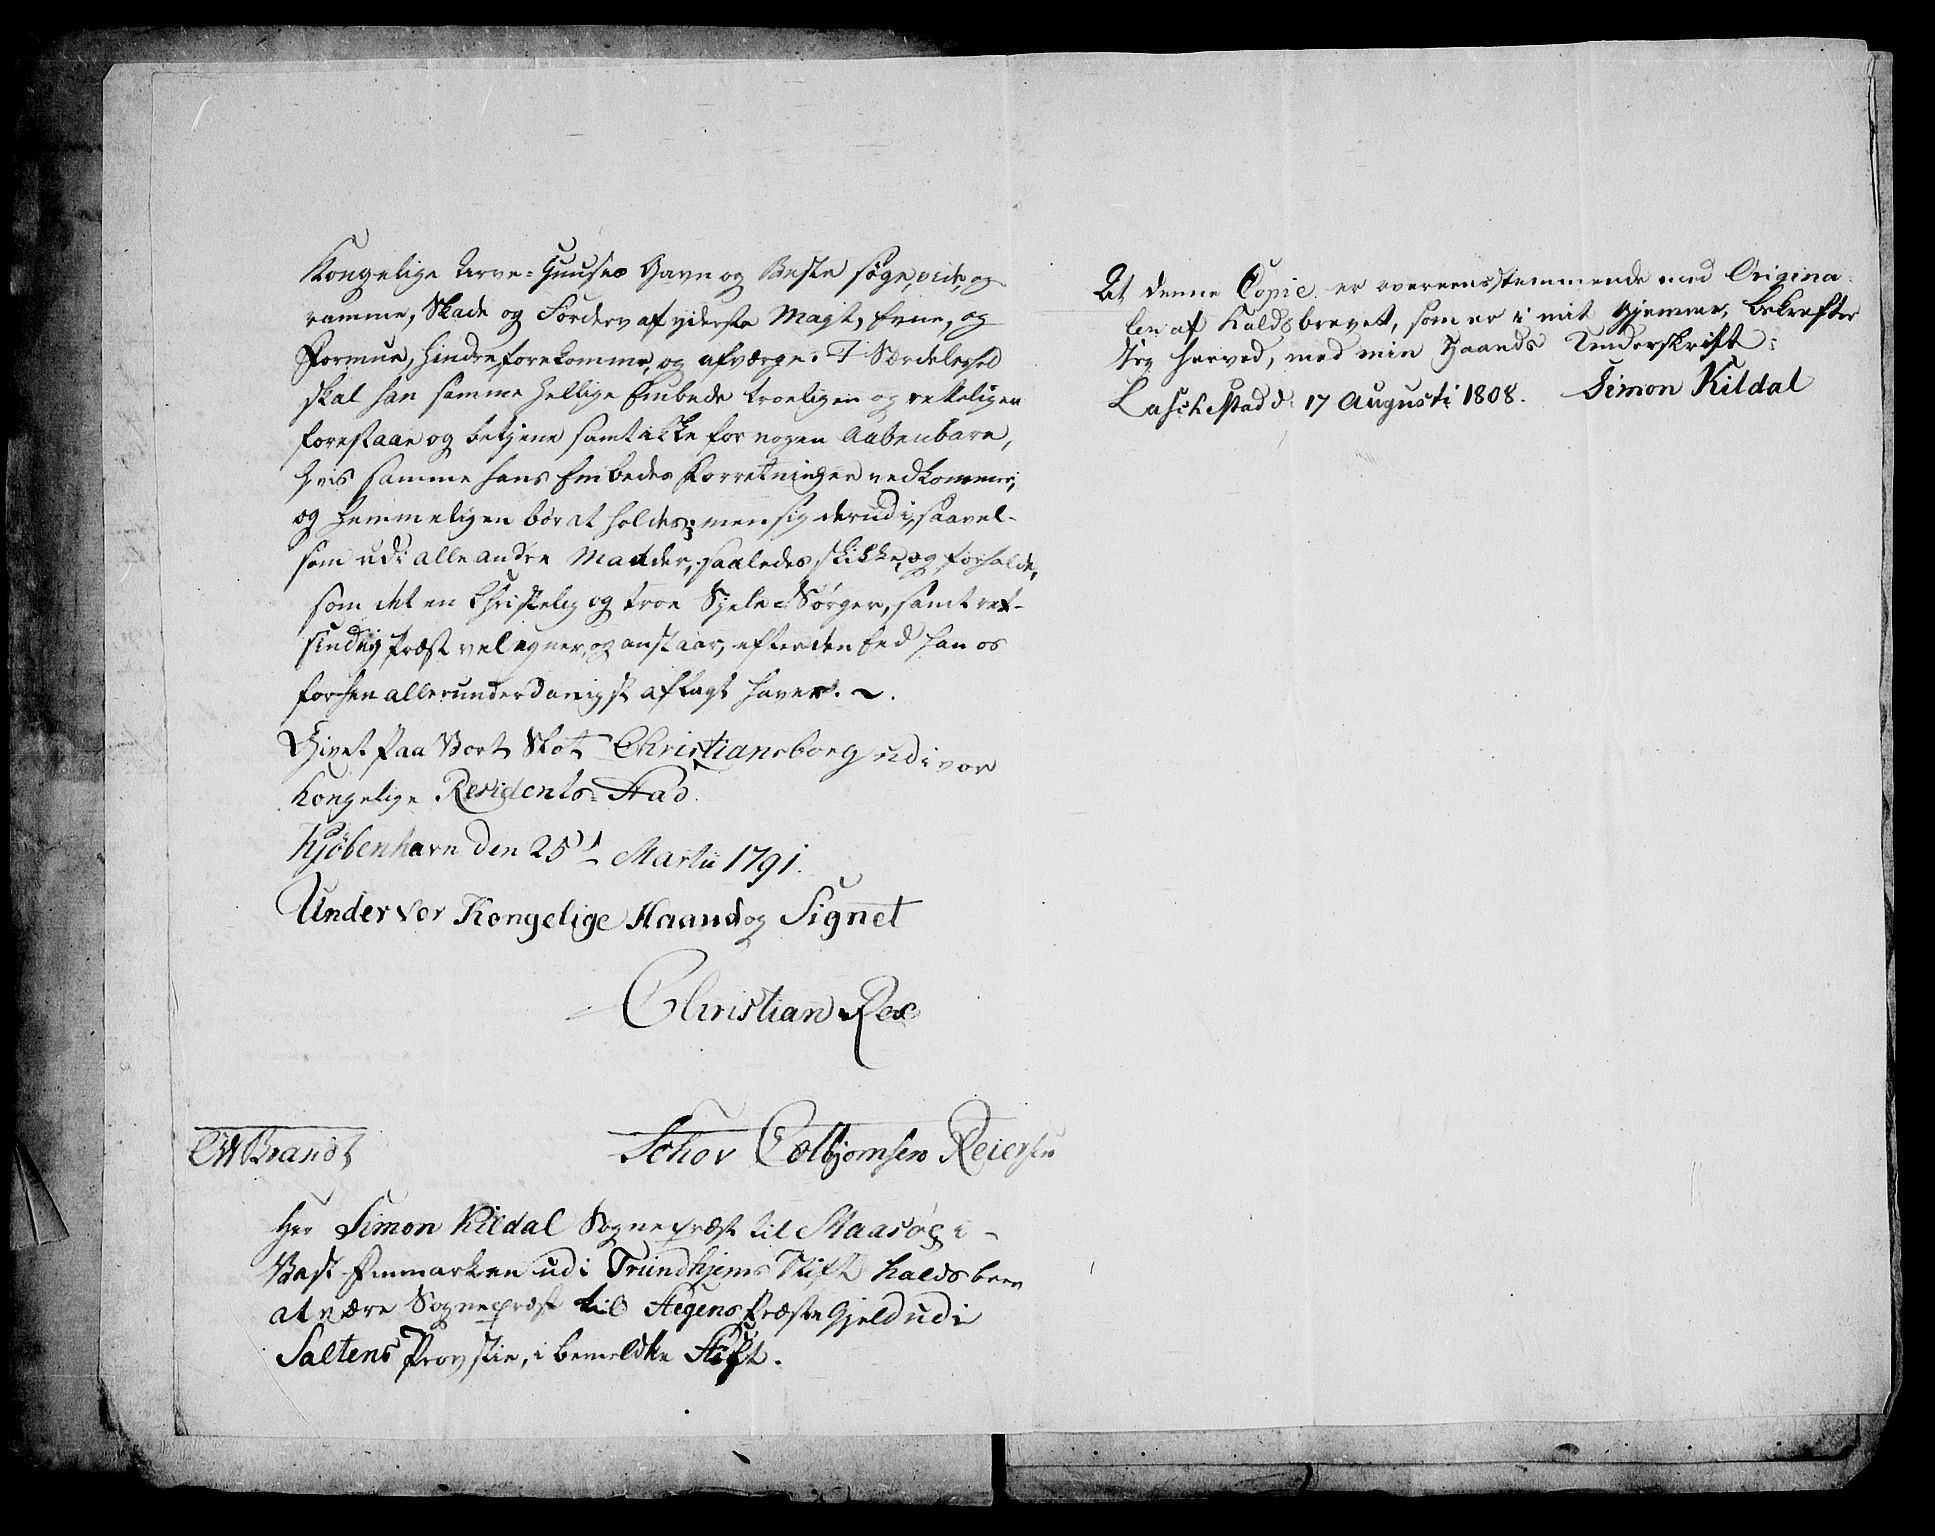 Kongelige Arve-Huuses Gavn og Beste søge, vide, og
ramme, Skade og Forderv af yderste Magt, Evne, og
Formue, hindre, forekomme, og afværge. I Særdeleshed
skal han samme hellige Embede troeligen og retteligen
forestaae og betjene samt ikke for nogen Aabenbare,
hvis samme hans Embedes Forretninger vedkommer,
og hemmeligen bør at holdes; men sig derudi, saavel-
som udi alle andre Maader, saaledes skikke, og forholde,
som det en Christelig og troe Sjele-Sørger, samt ret-
sindig Præst vel egner, og anstaar, efter den Eed han os
forhen allerunderdanigst aflagt haver. ~.
Givet paa Vort Slot Christiansborg udi vor
Kongelige Residents-Stad
Kjöbenhavn den 25de Martii 1791.
Under Vor Kongelige Haand og Signet
Christian Rex
Schov Colbjørnsen Reiersen
CW Brandt
Her Simon Kildal Sognepræst til Maasøe i
Vest-Finmarken udi Trundhjems Stift Kaldsbrev
at være Sognepræst til Stegens Præste Gjeld udi
Saltens Provstie, i bemeldte Stift.
At denne Copie er overeensstemmende med Origina-
len af Kaldsbrevet, som er i mit Gjemme, bekræfter
Jeg herved, med min Haands Underskrift:
Laschestad d. 17 Augusti 1808. Simon Kildal